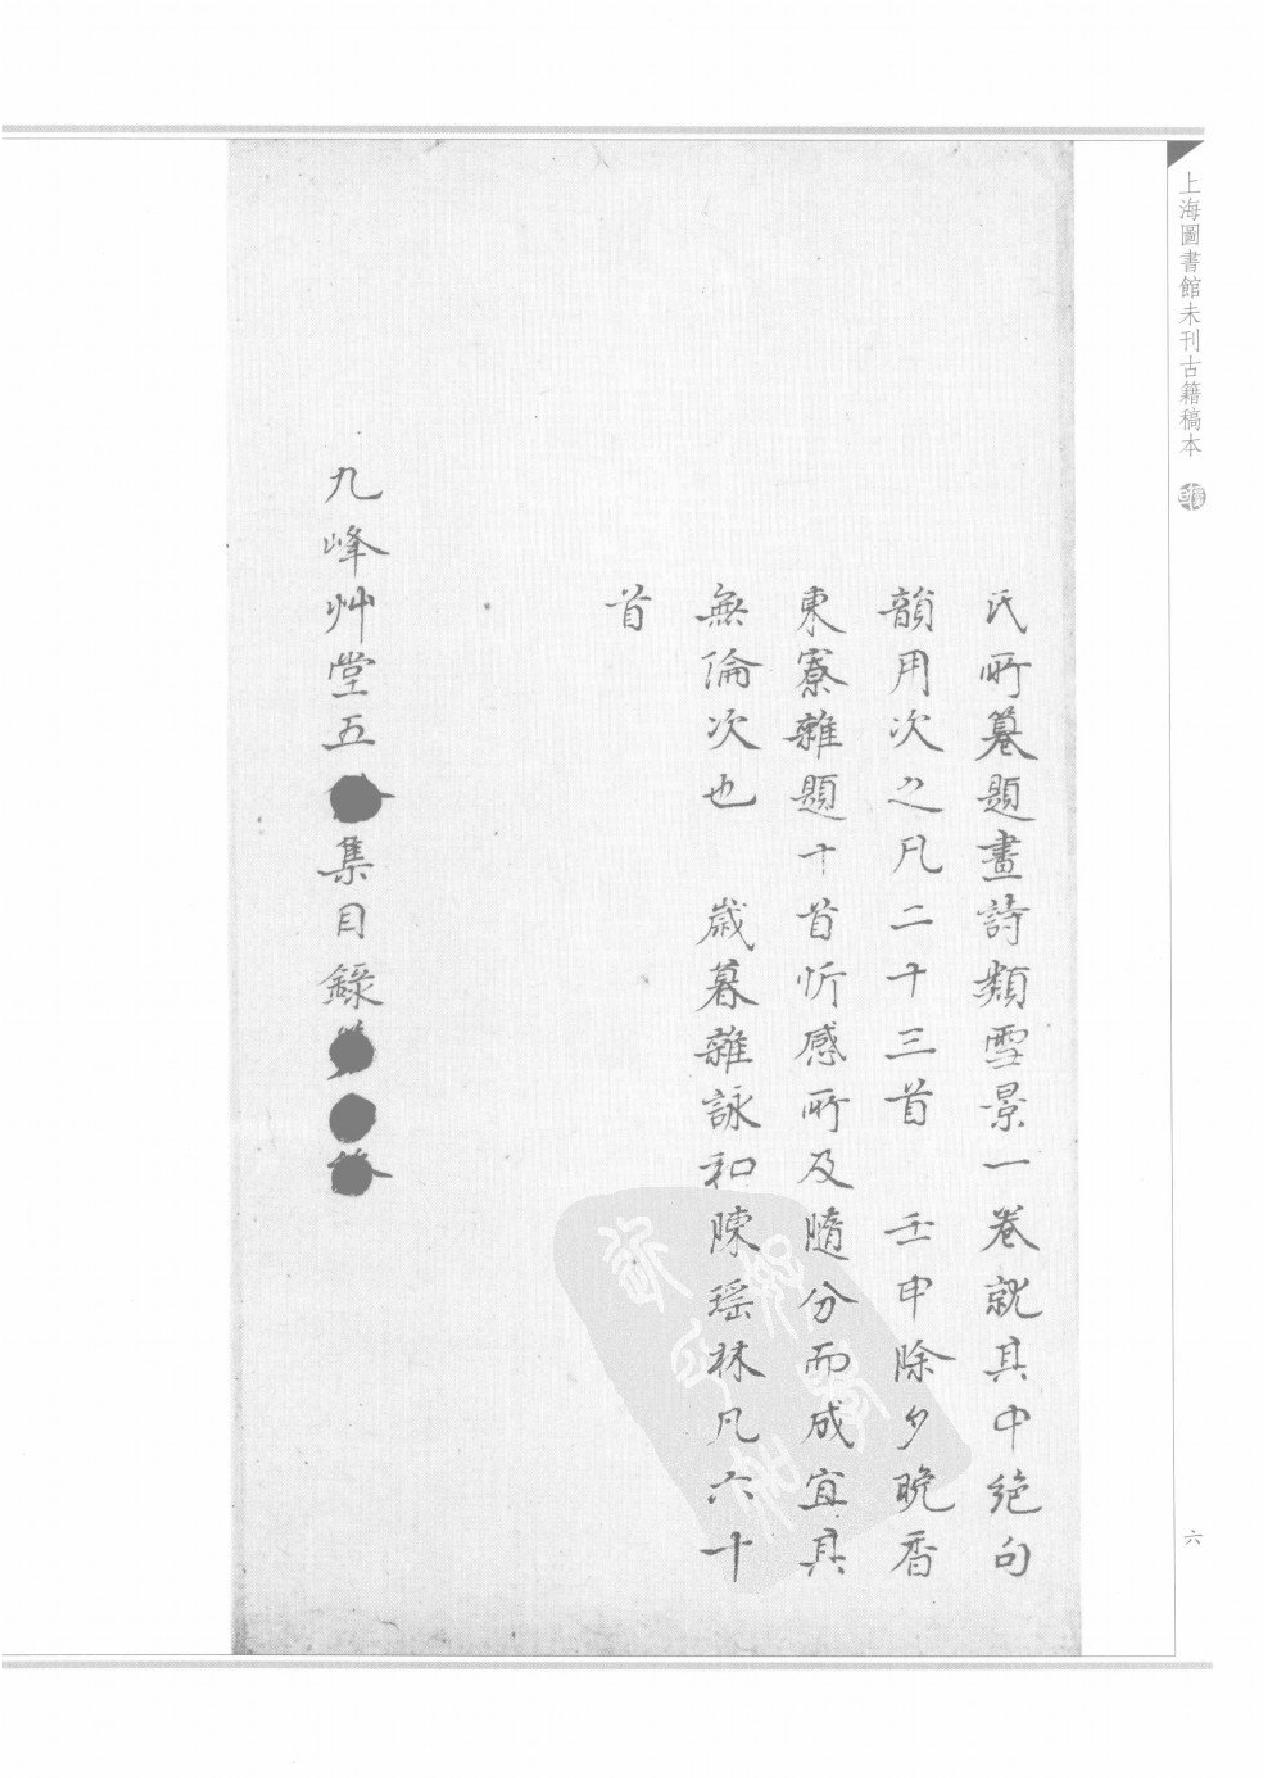 上海圖書館未刊古籍稿本
六
氏所纂題畫詩類雪景一卷就其中絕句
韻用次之凡二十三首　壬申除夕晚香
東寮雜題十首忻感所及隨分而成宜其
無倫次也　歲暮雜詠和陳瑶林凡六十
首
九峰艸堂五集目錄